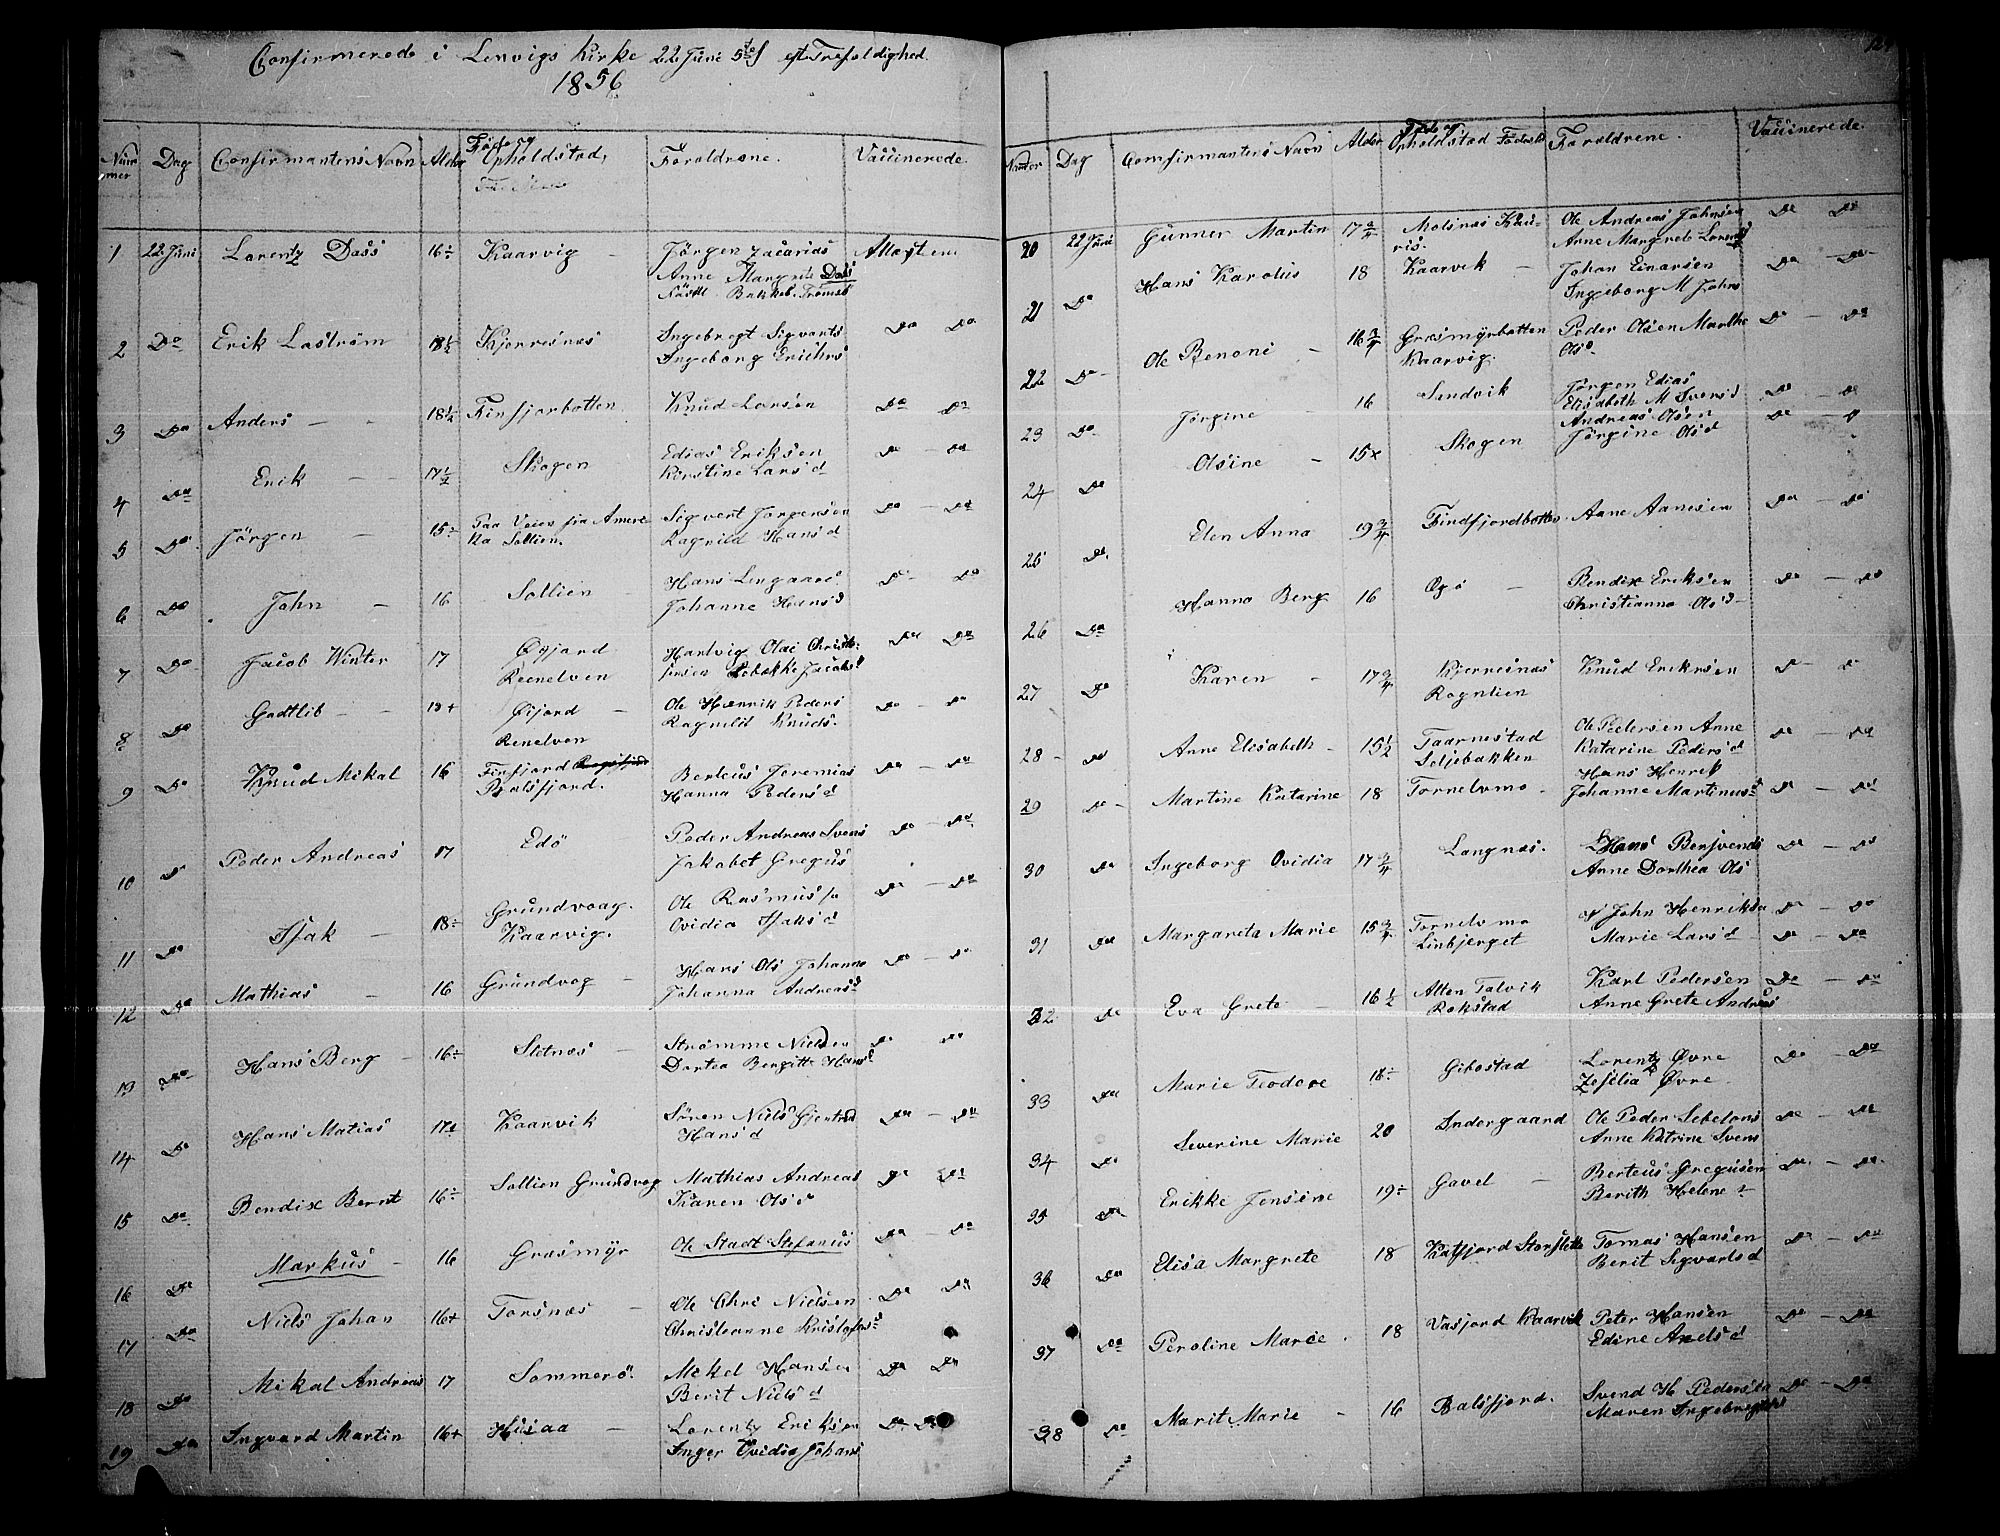 Confirmerede i Lenvigs Kirke 22 Juni 5te S eft Trefoldighed.
1856
Num mer Dag Confirmantens Navn Alder Føde og Opholdstad, Foreldrene. Vaccinerede.
1 22 Juni Lorentz Dass 16÷ Kaarvig Jørgen Zacarias Attesten
Anne Margr Dass
Bakkeb. Tromsø
2 Do Erik Lastrøm 18½ Kjerresnæs Ingebregt Sigvarts Do Do
Ingeborg Erichs
3 Do Anders 18½ Finfjorbotten Knud Larsen Do Do
4 Do Erik 17½ Skogen Edias Eriksen Do Do
Kirstine Lars d
5 Do Jørgen 15÷ Paa Veien fra Ameri Sigvert Jørgensen Do Do
ka Sollien. Ragnild Hans d
6 Do John 16 Sollien Hans Lengaars Do Do
Johanne Hans d
7 Do Jacob Winter 17 Øyjord Hartvig Olai Christ Do Do
Reenelven jensen Rebekke Jacobs
8 Do Gadtlib Øijord Ole Henrik Peders Do Do
Renelven Ragnild Knuds.
9 Do Knud Mikal 16 Finfjord Berteus Jeremias Do Do
Balsfjord. Hanna Peders d
10 Do Peder Andreas 17 Edø Peder Andreas Svens Do Do
Jakobet Gregus
11 Do Isak 18÷ Grundvaag. Ole Rasmus Do Do
Kaarvig. Ovidia Isaks d
12 Do Mathias 16 Grundvog Hans Ols Johanna Do Do
Johanna Andreas d
13 Do Hans Berg 16÷ Sletnæs Strømme Nielsen Do Do
Dortea Bergitte Hans d
14 Do Hans Matias 17½ Kaarvik Søren Niels Gjertrud Do Do
Hans d
15 Do Bendix Bernt 16÷ Sollien Grundvog Mathias Andreas Do Do
Karen Ols d
16 Do Markus 16 Græsmyr Ole Stadt Stefanus Do Do
17 Do Niels Johan 16+ Torsnæs Ole Chri Nielsen Do Do
Christianne Kristofers d
18 Do Mikal Andreas 17 Sommerø. Mikel Hansen Do Do
Berit Niels d
19 Do Ingvard Martin 16+ Husaa Lorentz Eriksen Do Do
Inger Ovidia Johans
Num̅er Dag Comfirmantens Navn Alder Føde og Opholdstad Foreldrene. Vaccinerede.
20 22 Juni Gunner Martin 17¾ Molsnæs Kaa Ole Andreas Johnsen Do Do
Anne Margreb Lorents
21 Do Hans Karolus 18 Kaarvek Johan Einarsen Do Do
Ingeborg M Johns
22 Do Ole Benoni 16¾ Græsmyrbotten Peder Olsen Marthe Do Do
Kaarvig. Ols
23 Do Jørgine 16 Sandvik Jørgen Edias Do Do
Elisabeth M Svens d
24 Do Olsine 15x Skogen Andreas Olsen Do
Jørgine Ols d
25 Do Elen Anna 19¾ Findfjordbotten Aane Aanesen Do Do
26 Do Hanna Berg 16 Øgø Bendix Eriksen Do Do
Christianna Ols d
27 Do Karen 17¾ Kjerresnæs Knud Eriksen Do Do
Rognlien
28 Do Anne Elisabeth 15½ Taarnestad Ole Pedersen Anne Do Do
Seljebakken Katarine Peders d
29 Do Martine Katarine 18 Tornelvmo Hans Henrik Do Do
Johanne Martinus d
30 Do Ingeborg Ovidia 17¾ Langnæs. Hans Benjvends Do Do
Anne Dorthea Ols
31 Do Margareta Marie 15¾ Tornelvmo John Henriksen Do Do
Linbjerget Marie Lars d Do Do
32 Do Eva Grete 16½ Alten Talvik Karl Pedersen Do Do
Rokstad Anne Grete Andreas
33 Do Marie Teodore 18÷ Gibostad Lorentz Øvre Do Do
Zesilia Øvre
34 Do Severine Marie 20 Indergaard Ole Peder Sebelons Do Do
Anne Katrine Svens
35 Do Erikke Jensine 19÷ Gavel Berteus Gregusen Do Do
Berith Helene
36 Do Elisa Margrete 18 Katfjord Storslett Tomas Hansen Do Do
Berit Sigvarts d
37 Do Peroline Marie 18 Vasjord Kaarvik Peter Hansen Do Do
Edine Axels d
38 Do Marit Marie 16 Balsfjord. Svend H Peders Do Do
Maren Ingebregts